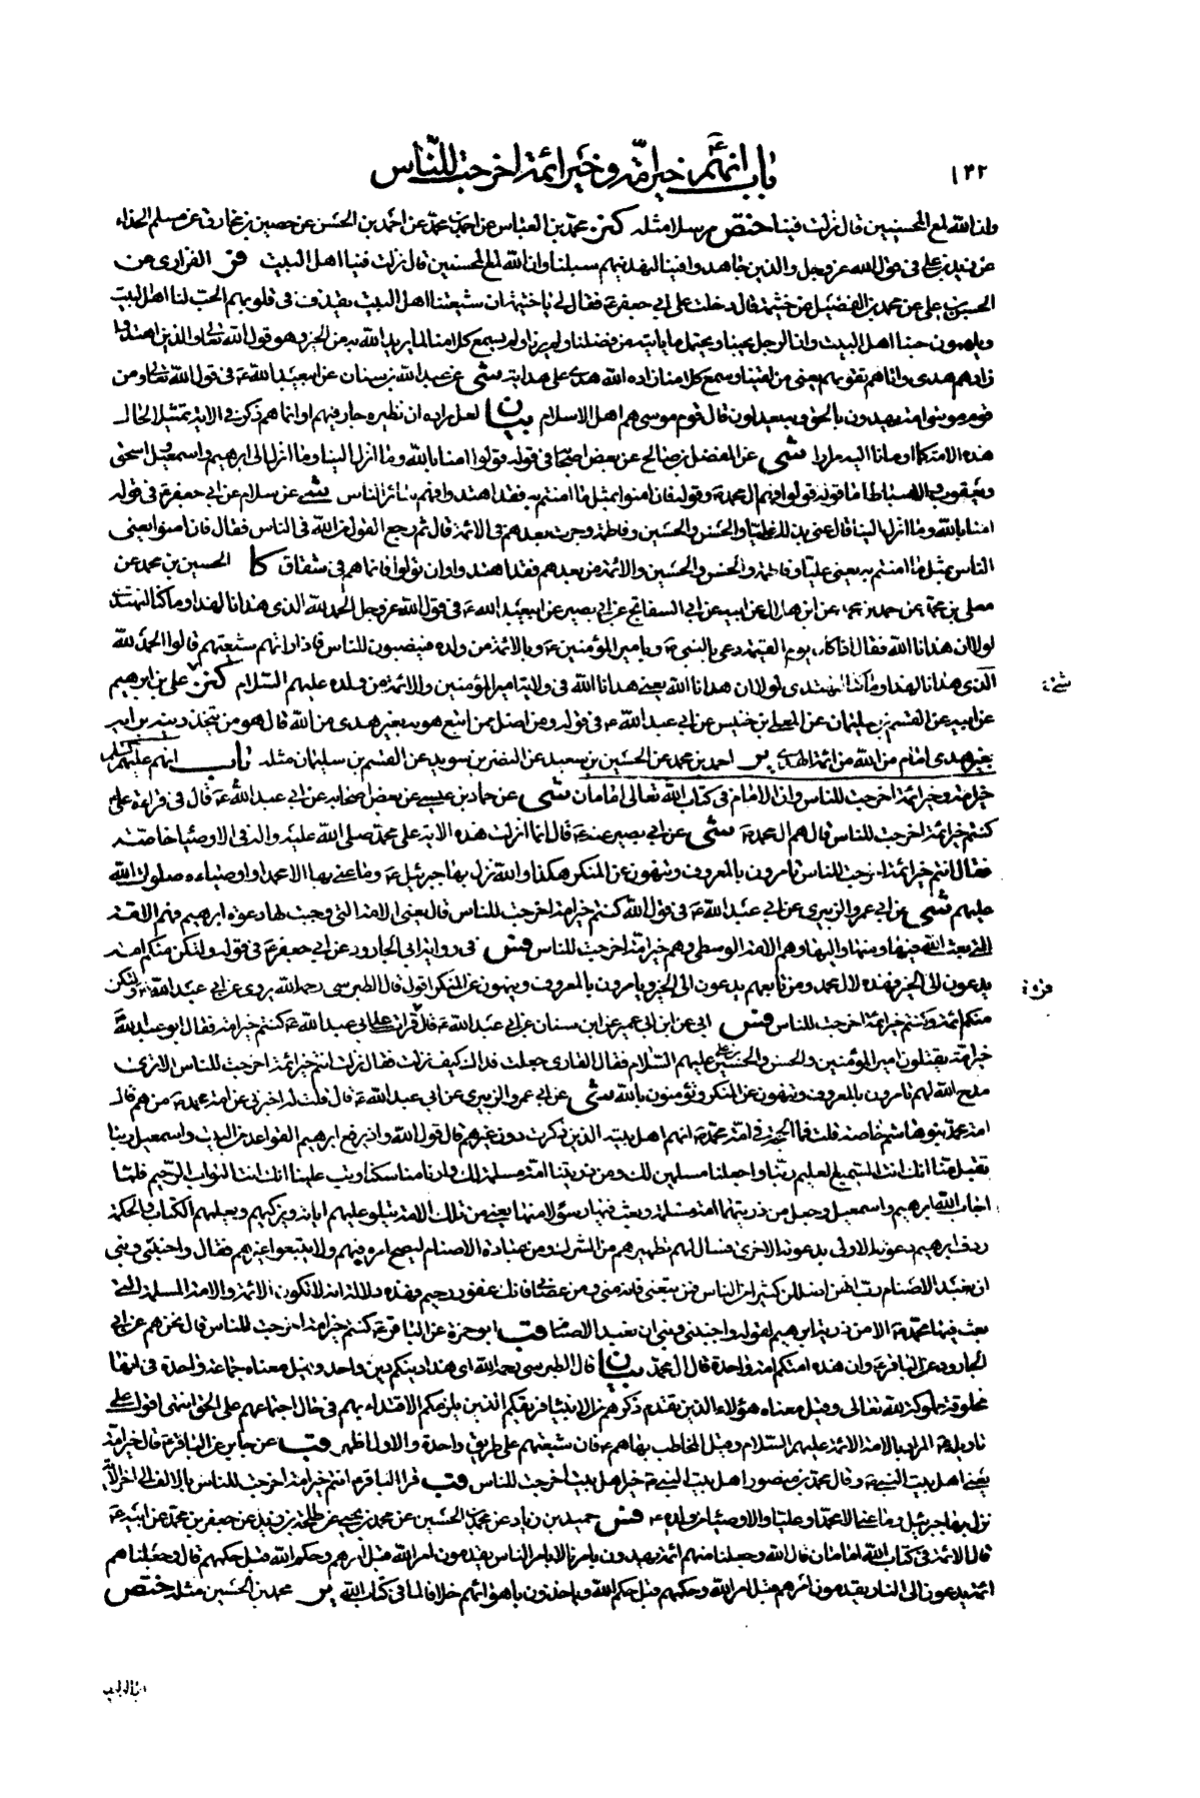 ١٤٢
باب انهم ع خير امة و خير ائمة اخرجت للناس
وان الله لمع المحسنين قال نزلت فينا ختص مرسلا مثله كنز محمد بن العباس عن احمد بن محمد عن احمد بن الحسن عن حصين بن مخارق عن مسلم الحذاء
عن زيد بن علي فى قول الله عز وجل والذين جاهدوا فينا لنهدينهم سبلنا وان الله لمع المحسنين قال نزلت فينا اهل البيت فر الفزارى عن
الحسين بن علي عن محمد بن الفضيل عن خيثمة قال دخلت على ابي جعفر ع فقال لي يا خيثمة ان شيعتنا اهل البيت يقذف فى قلوبهم الحب لنا اهل البيت
ويلهمون حبنا اهل البيت وان الرجل يحبنا ويحتمل ما ياتيه من فضلنا ولم يرنا ولم يسمع كلامنا لما يريد الله به من الخير وهو قول الله تعالى والذين اهتدوا
زادهم هدى واتاهم تقويهم يعنى من لقينا وسمع كلامنا زاده الله هدى على هداه شى عن عبد الله بن سنان عن ابيعبد الله ع فى قول الله تعالى ومن
قوم موسى امة يهدون بالحق وبه يعدلون قال قوم موسى هم اهل الاسلام بيان لعل مراده ان نظيره جار فيهم وانما هم ذكروا فى الاية تمثيلا لحال
هذه الامة كما اومانا اليه مرارا شى عن المفضل بن صالح عن بعض اصحابه فى قوله قولوا امنا بالله وما انزل الينا وما انزل الى ابرهيم واسمعيل واسحق
ويعقوب والاسباط اما قوله قولوا فهم ال محمد ص وقوله فان امنوا بمثل ما امنتم به فقد اهتدوا فهم سائر الناس شى عن سلام عن ابي جعفر ع فى قوله
امنا بالله وما انزل الينا قال عنى بذلك عليا والحسن والحسين وفاطمة وجرت بعدهم فى الائمة قال ثم رجع القول من الله فى الناس فقال فان امنوا يعنى
الناس بمثل ما امنتم به يعنى عليا وفاطمة والحسن والحسين والائمة من بعدهم فقد اهتدوا وان تولوا فانما هم فى شقاق كا الحسين بن محمد عن
معلى بن محمد عن احمد بن محمد عن ابن هلال عن ابيه عن ابي السفاتج عن ابي بصير عن ابيعبد الله ع فى قول الله عز وجل الحمد لله الذى هدانا لهذا وما كنا لنهتدى
لولا ان هدانا الله فقال اذا كان يوم القيمة دعى بالنبى ص وبامير المؤمنين ع وبالائمة من ولده فينصبون للناس فاذا راتهم شيعتهم قالوا الحمد لله
الذى هدانا لهذا وما كنا لنهتدى لولا ان هدانا الله يعنى هدانا الله فى ولاية امير المؤمنين والائمة من ولده عليهم السلام كنز على بن ابرهيم
عن ابيه عن القسم بن سليمان عن المعلى بن خنيس عن ابي عبد الله ع فى قوله ومن اضل ممن اتبع هويه بغير هدى من الله قال هو من يتخذ دينه برايه
بغير هدى امام من الله من ائمة الهدى ير احمد بن محمد عن الحسين بن سعيد عن النضر بن سويد عن القسم بن سليمان مثله باب انهم عليهم السلام
خير امة وخير ائمة اخرجت للناس وان الامام فى كتاب الله تعالى امامان شى عن حماد بن عيسى عن بعض اصحابه عن ابي عبد الله ع قال فى قراءة على ع
كنتم خير ائمة اخرجت للناس قال هم ال محمد ص شى عن ابي بصير عنه ع قال انما انزلت هذه الاية على محمد صلى الله عليه واله فى الاوصياء خاصة
فقال انتم خير ائمة اخرجت للناس تامرون بالمعروف وتنهون عن المنكر هكذا والله نزل بها جبرئيل ع وما عنى بها الا محمدا واوصياءه صلوات الله
عليهم شى عن ابي عمرو الزبيرى عن ابي عبد الله ع فى قول الله كنتم خير امة اخرجت للناس قال يعنى الامة التى وجبت لها دعوة ابرهيم فهم الامة
التى بعث الله فيها ومنها واليها وهم الامة الوسطى وهم خير امة اخرجت للناس فس فى رواية ابي الجارود عن ابي جعفر ع فى قوله ولتكن منكم امة
يدعون الى الخير فهذه لال محمد ومن تابعهم يدعون الى الخير ويامرون بالمعروف وينهون عن المنكر اقول قال الطبرسى رحمه الله يروى عن ابي عبد الله ع ولتكن
منكم ائمة وكنتم خير ائمة اخرجت للناس فس ابي عن ابن ابي عمير عن ابن سنان عن ابي عبد الله ع قال قرات على ابي عبد الله ع كنتم خير امة فقال ابو عبد الله
خير امة يقتلون امير المؤمنين والحسن والحسين بن علي عليهم السلام فقال القارى جعلت فداك كيف نزلت فقال نزلت انتم خير ائمة اخرجت للناس الا ترى
مدح الله لهم تامرون بالمعروف وتنهون عن المنكر وتؤمنون بالله شى عن ابي عمرو الزبيرى عن ابي عبد الله ع قال قلت له اخبرنى عن امة محمد ص من هم قال
امة محمد بنو هاشم خاصة قلت فما الحجة فى امة محمد ص انهم اهل بيته الذين ذكرت دون غيرهم قال قول الله واذ يرفع ابرهيم القواعد من البيت واسمعيل ربنا
تقبل منا انك انت السميع العليم ربنا واجعلنا مسلمين لك ومن ذريتنا امة مسلمة لك وارنا مناسكنا وتب علينا انك انت التواب الرحيم فلما
اجاب الله ابرهيم واسمعيل وجعل من ذريتهما امة مسلمة وبعث فيها رسولا منها يعنى من تلك الامة يتلو عليهم اياته ويزكيهم ويعلمهم الكتاب والحكمة
ردف ابرهيم دعوته الاولى بدعوته الاخرى فسال لهم تطهيرهم من الشرك ومن عبادة الاصنام ليصح امره فيهم ولا يتبعوا غيرهم فقال واجنبنى وبنى
ان نعبد الاصنام رب انهن اضللن كثيرا من الناس فمن تبعنى فانه منى ومن عصانى فانك غفور رحيم فهذه دلالة انه لا تكون الائمة والامة المسلمة التى
بعث فيها محمد ص الا من ذرية ابرهيم لقوله واجنبنى وبنى ان نعبد الاصنام قب ابو حمزة عن الباقر ع كنتم خير امة اخرجت للناس قال نحن هم عن ابي
الجارود عن الباقر ع وان هذه امتكم امة واحدة قال ال محمد بيان قال الطبرسى رحمه الله اى هذا دينكم دين واحد وقيل معناه جماعة واحدة فى انها
مخلوقة مملوكة لله تعالى وقيل معناه هؤلاء الذين تقدم ذكرهم من الانبياء فريقكم الذين يلزمكم الاقتداء بهم فى حال اجتماعهم على الحق انتهى اقول على
تاويله ع المراد بالامة الائمة عليهم السلام وقيل المخاطب بها هم ع فان شيعتهم على طريقة واحدة والاول اظهر قب عن جابر عن الباقر ع قال خير امة
يعنى اهل بيت النبى ص وقال محمد بن منصور اهل بيت النبى ص خير اهل بيت اخرجت للناس قب قرا الباقر ع انتم خير امة اخرجت للناس بالالف الى اخر الاية
نزل بها جبرئيل وما عنى الا محمدا وعليا والاوصياء من ولده ع فس حميد بن زياد عن محمد بن الحسين عن محمد بن يحيى عن طلحة بن زيد عن جعفر بن محمد عن ابيه ع
قال الائمة فى كتاب الله امامان قال الله وجعلنا منهم ائمة يهدون بامرنا لا بامر الناس يقدمون امر الله قبل امرهم وحكم الله قبل حكمهم قال وجعلناهم
ائمة يدعون الى النار يقدمون امرهم قبل امر الله وحكمهم قبل حكم الله وياخذون باهوائهم خلافا لما فى كتاب الله ير محمد بن الحسين مثله ختص